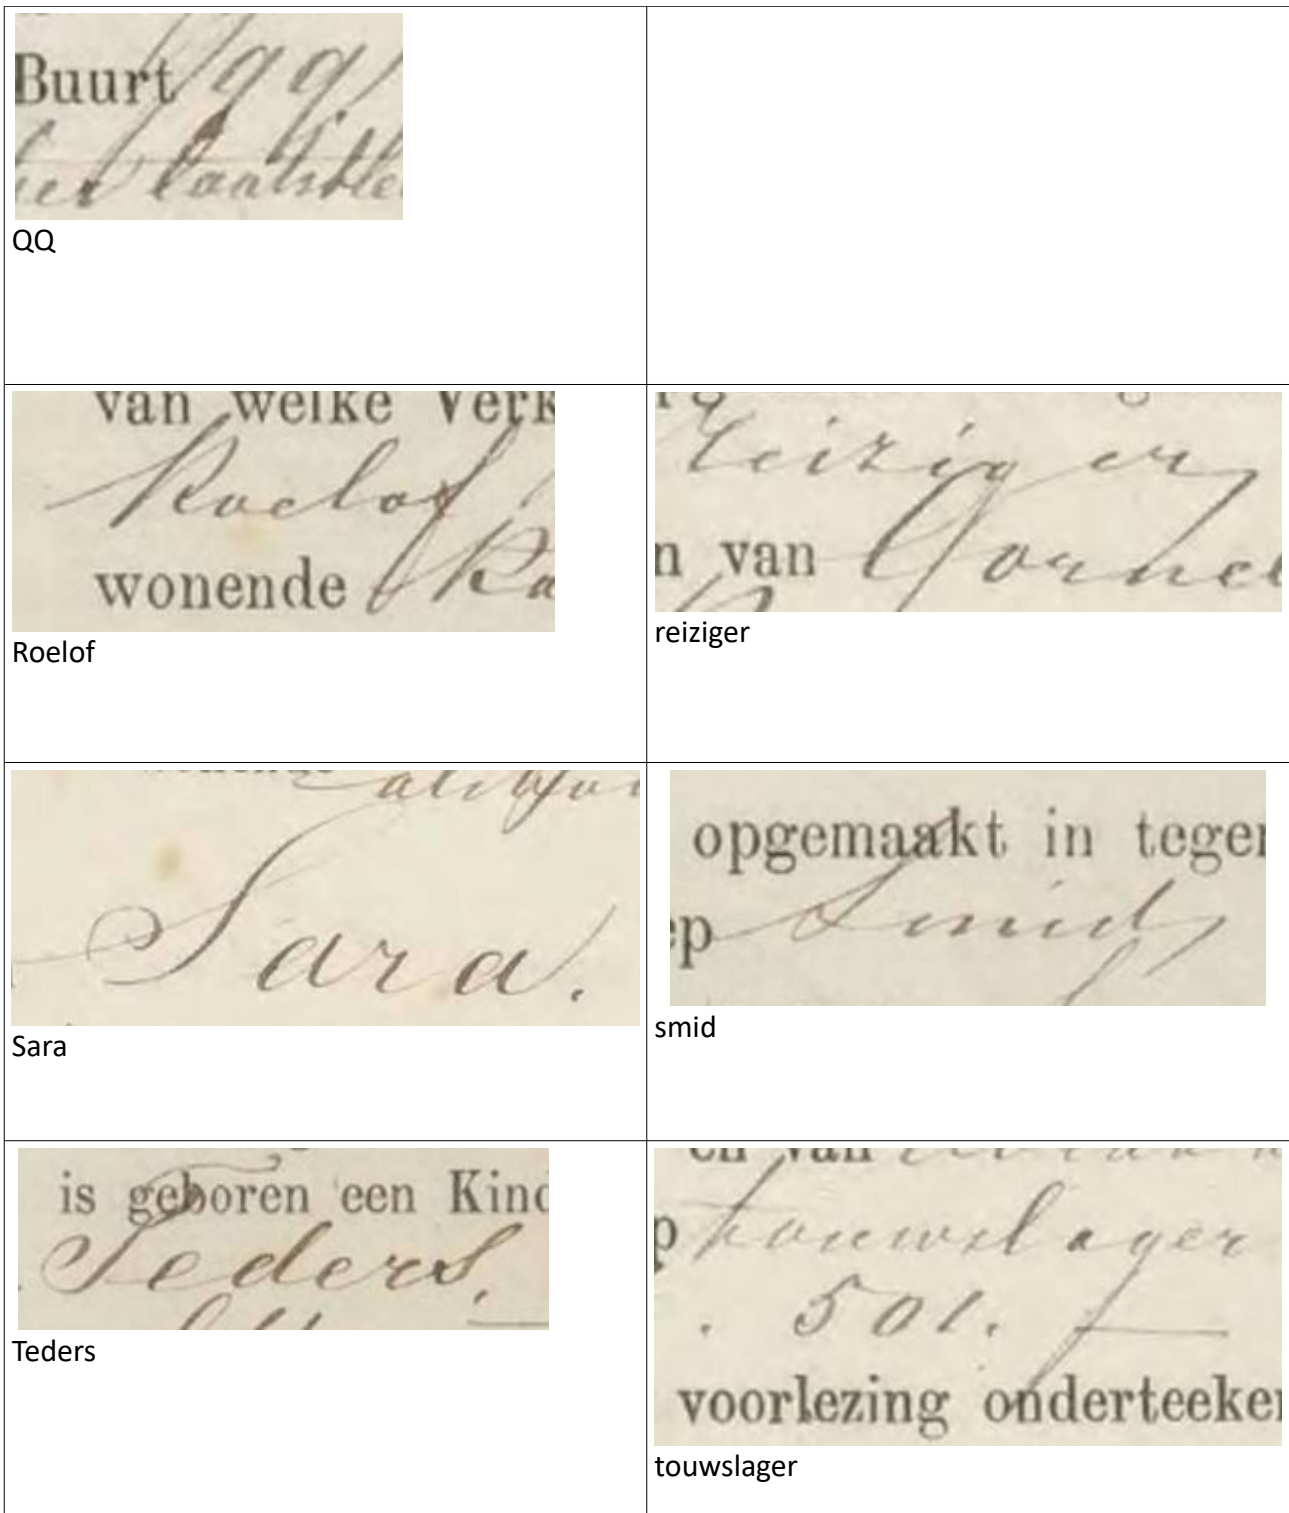 Buurt QQ
QQ
van welke Verk
Roelof
wonende
Roelof
reiziger
n van Cornel
reiziger
Sara.
Sara
opgemaakt in tegen
ep smid,
smid
is geboren een Kind
Teders,
Teders
en van
touwslager
501.
voorlezing onderteeke
touwslager